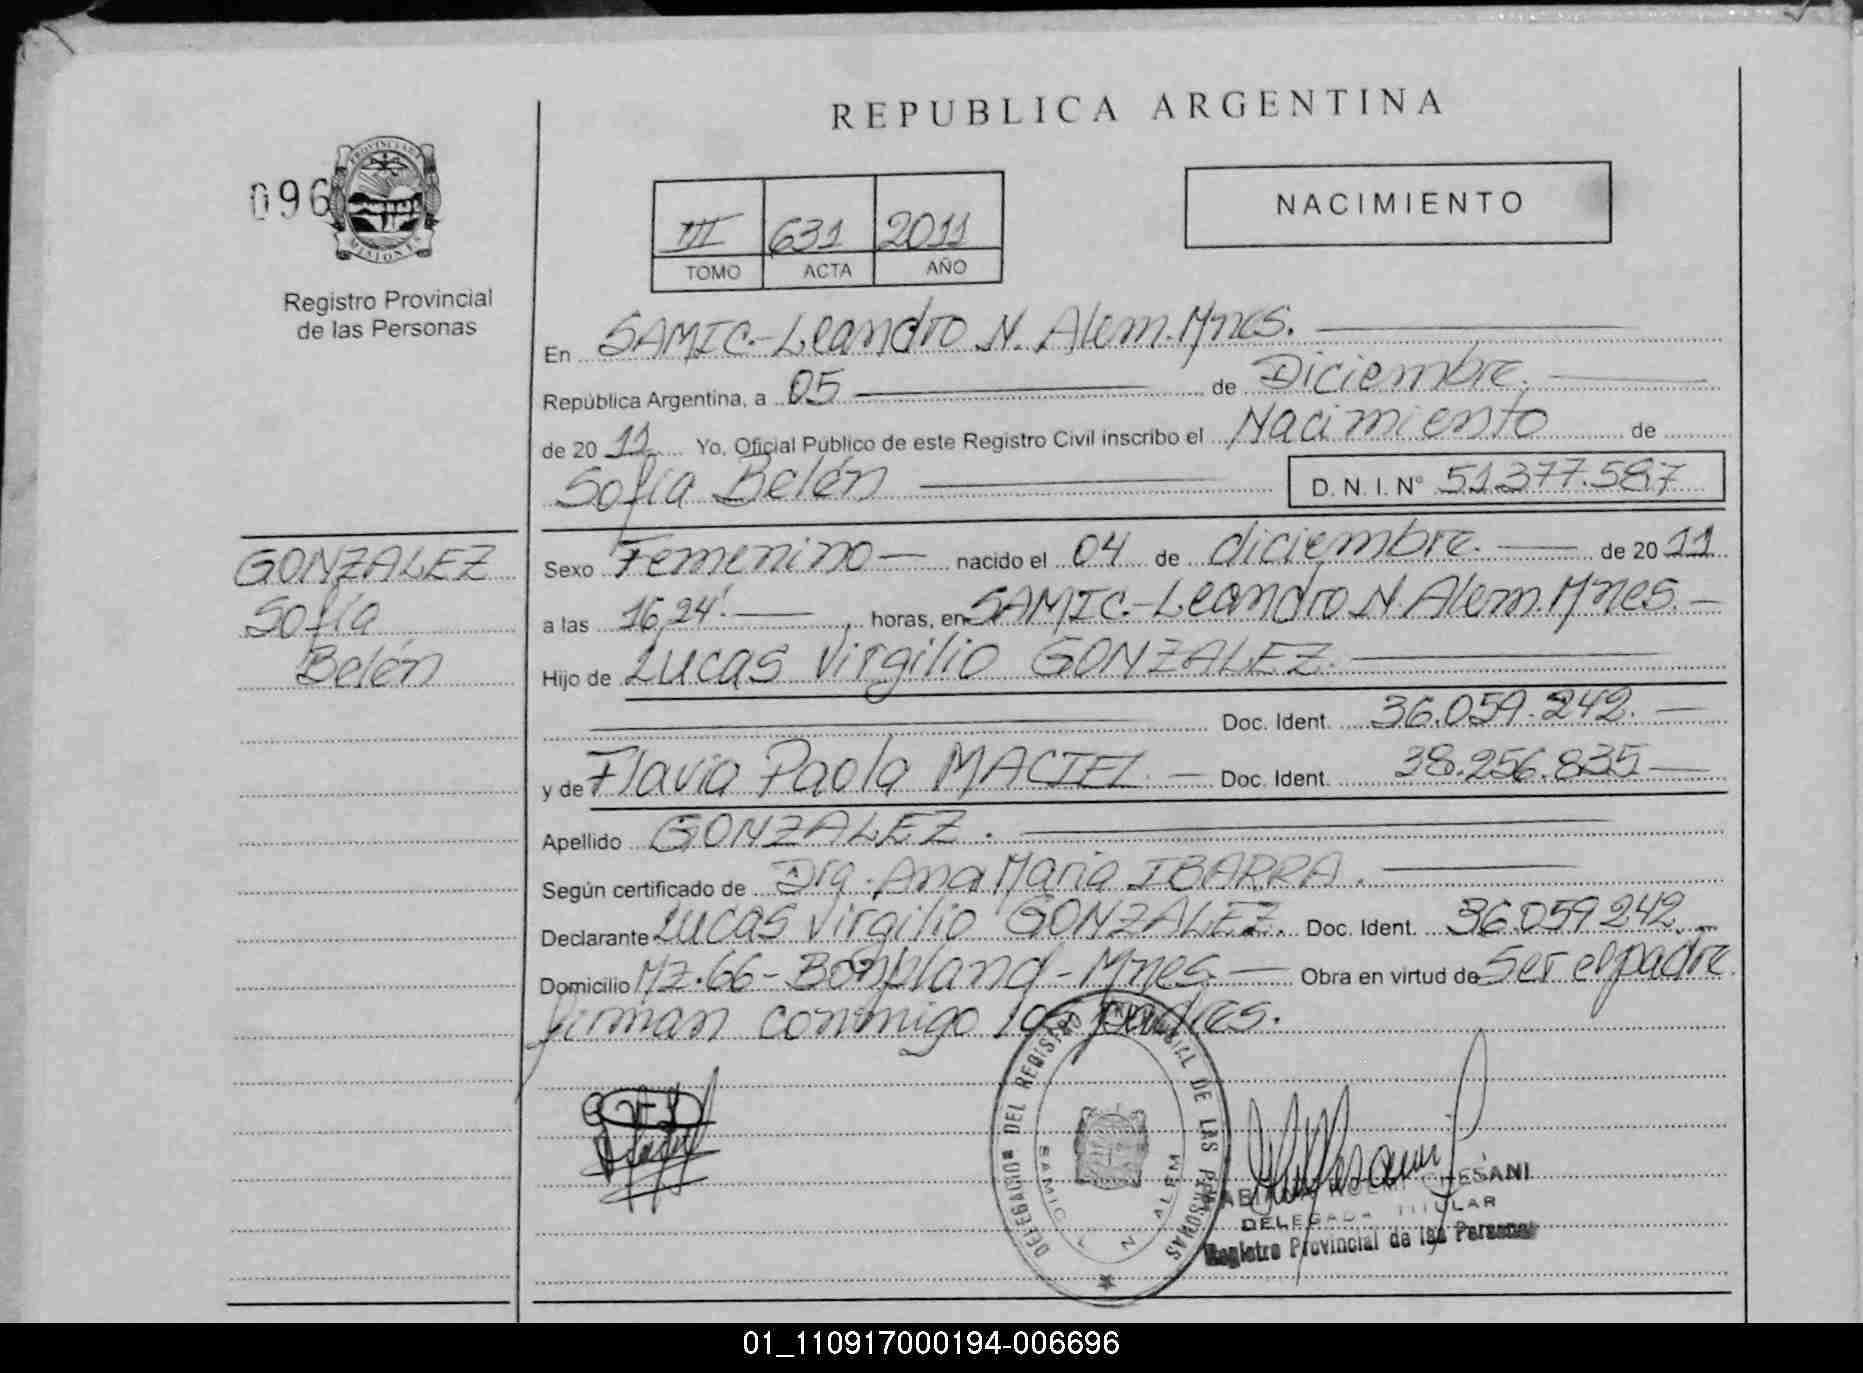 REPUBLICA ARGENTINA
096
PROVINCIA DE
MISIONES
Registro Provincial
de las Personas
III 631 2011
TOMO ACTA AÑO
NACIMIENTO
En SAMIC.-Leandro N. Alem.Mnes.
República Argentina, a 05 de Diciembre.
de 20 11 Yo, Oficial Público de este Registro Civil inscribo el Nacimiento de
Sofía Belén D. N. I. N° 51.377.587
GONZALEZ
Sofía
Belén
Sexo Femenino nacido el 04 de diciembre. de 20 11
a las 16,24' horas, en SAMIC.-Leandro N. Alem.Mnes.
Hijo de Lucas Virgilio GONZALEZ.
Doc. Ident. 36.059.242.
y de Flavia Paola MACIEL. Doc. Ident. 38.256.835
Apellido GONZALEZ.
Según certificado de Dra. Ana Maria IBARRA.
Declarante Lucas Virgilio GONZALEZ. Doc. Ident. 36.059.242.
Domicilio MZ.66- Bonpland - Mnes. Obra en virtud de Ser el padre
firman conmigo los padres.
DELEGACIO DEL REGISTRO PROVINCIAL DE LAS PERSONAS
SAMIC L N ALEM
NOEMI CHESANI
DELEGADA TITULAR
Registro Provincial de las Personas
01_110917000194-006696